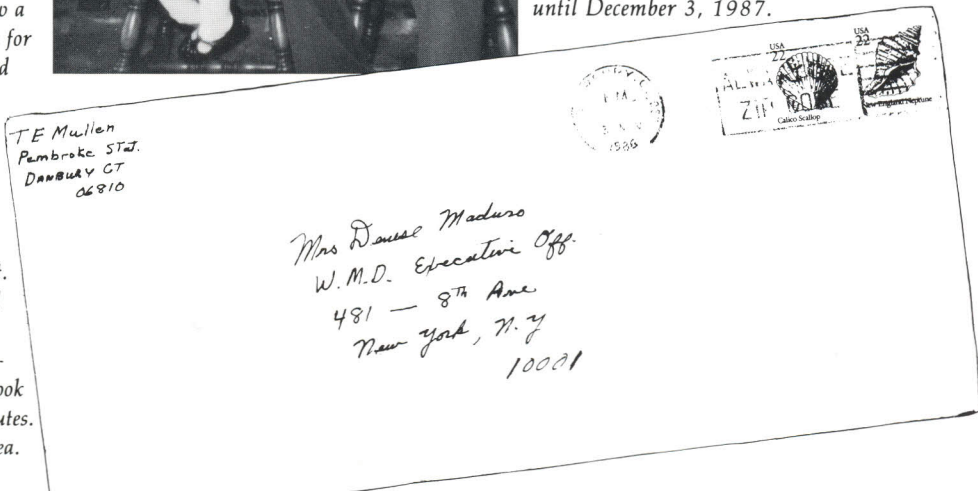 w a
for
d
until December 3, 1987.
T E Mullen
Pembroke Stat.
DANBURY CT
06810
USA
22
USA
22
ZIP CODE
Calico Scallop
New England Neptune
1986
Mrs Denise Maduro
W.M.D. Executive Off.
481 — 8th Ave
New York, N.Y
10001
t.
ook
utes.
ea.